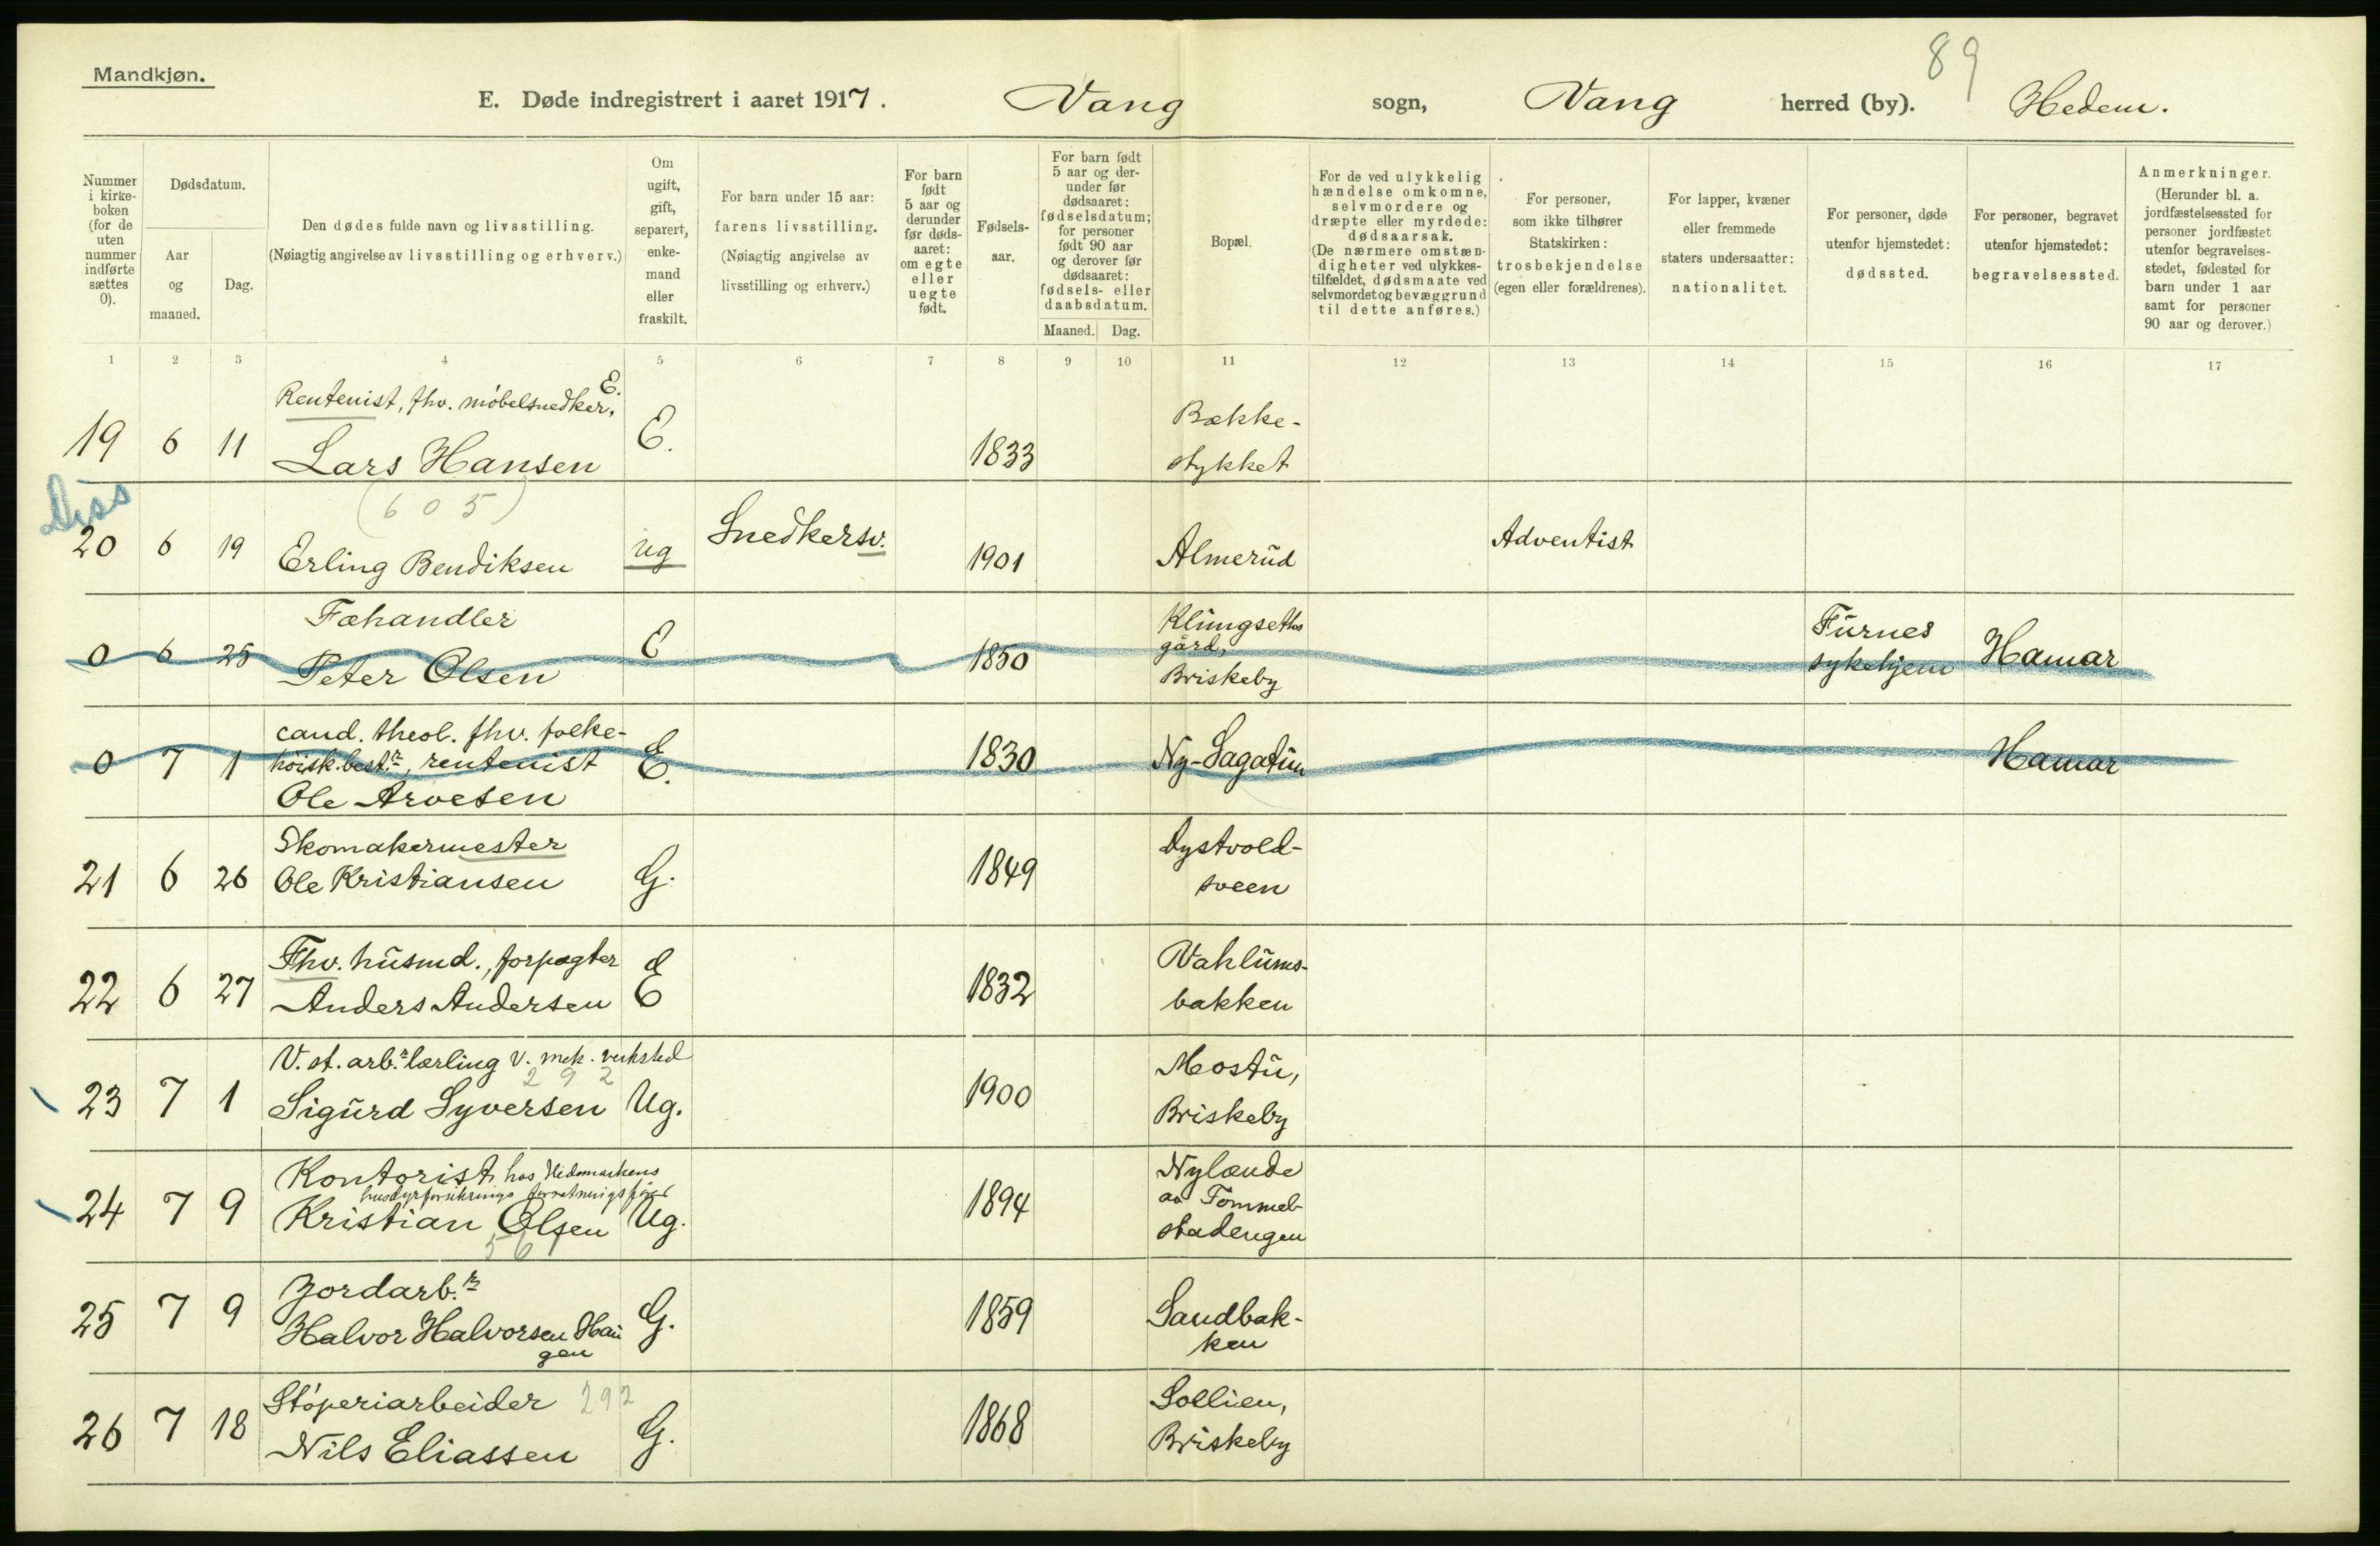 Mandkjøn.
89
E. Døde indregistrert i aaret 1917. Vang sogn, Vang herred (by). Hedem.
Nummer i kirke-boken (for de uten nummer indførte sættes 0).
Dødsdatum.
Aar og maaned.
Dag.
Den dødes fulde navn og livsstilling.
(Nøiagtig angivelse av livsstilling og erhverv.)
Om ugift, gift, separert, enke-mand eller fraskilt.
For barn under 15 aar: farens livsstilling. (Nøiagtig angivelse av livsstilling og erhverv.)
For barn født 5 aar og derunder før døds-aaret: om egte eller uegte født.
Fødsels-aar.
For barn født 5 aar og der-under før dødsaaret: fødselsdatum; for personer født 90 aar og derover før dødsaaret: fødsels- eller daabsdatum.
Maaned. Dag.
Bopæl.
For de ved ulykkelig hændelse omkomne, selvmordere og dræpte eller myrdede: dødsaarsak. (De nærmere omstæn-digheter ved ulykkes-tilfældet, dødsmaate ved selvmordet og bevæggrund til dette anføres.)
For personer, som ikke tilhører Statskirken: trosbekjendelse (egen eller forældrenes).
For lapper, kvæner eller fremmede staters undersaatter: nationalitet.
For personer, døde utenfor hjemstedet: dødssted.
For personer, begravet utenfor hjemstedet: begravelsessted.
Anmerkninger. (Herunder bl. a. jordfæstelsessted for personer jordfæstet utenfor begravelses-stedet, fødested for barn under 1 aar samt for personer 90 aar og derover.)
1 2 3 4 5 6 7 8 9 10 11 12 13 14 15 16 17
Rentenist, fhv. møbelsnedker, E.
19 6 11 Lars Hansen E. 1833 Bække-
stykket
Diss
(605)
20 6 19 Erling Bendiksen ug Snedkersv. 1901 Almerud Adventist
Fæhandler
0 6 25 Peter Olsen E 1850 Klungseths
gård,
Briskeby Furnes
sykehjem Hamar
cand. theol. fhv. folke-
høisk.best.r, rentenist
0 7 1 Ole Arvesen E. 1830 Ny-Sagatun Hamar
Skomakermester
21 6 26 Ole Kristiansen G. 1849 Dystvold-
sveen
Fhv. husmd., forpagter
22 6 27 Anders Andersen E 1832 Vahlums-
bakken
V. st. arb.r lærling v. mek. verksted
292
23 7 1 Sigurd Syversen Ug. 1900 Mostu,
Briskeby
Kontorist hos Hedemarkens
24 7 9 Kristian Olsen Ug. 1894 Nylænde
av Tommel-
stadengen
561
Jordarb.r
25 7 9 Halvor Halvorsen Hau
gen G. 1859 Sandbak-
ken
Støperiarbeider 292
26 7 18 Nils Eliassen G. 1868 Sollien,
Briskeby